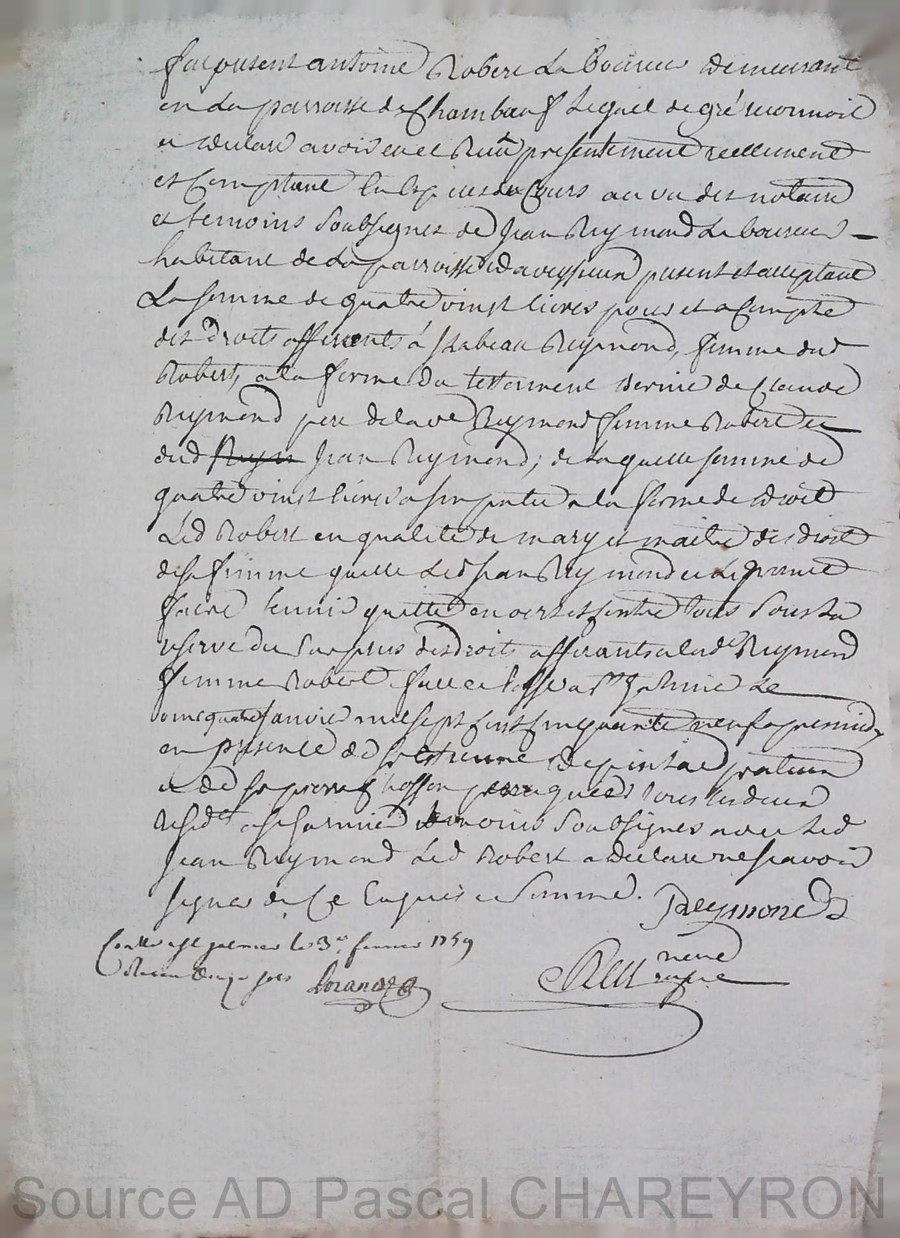 fut present antoine Robert Laboureur demeurant
en la parroisse de Chambœuf Lequel de gré reconnoit
et declare avoir eu et Reçu presentement reellement
et Comptant En Espices du Cours au vu des notaire
et temoins Soubsignes de Jean Reymond Laboureur
habitant de La parroisse d'aveyseiux present et acceptant
La somme de quatre vinst livres pour et a Compte
des droits afferents à Izabeau Reymond, femme dud
Robert, a la forme du testament dernie de Claude
Reymond pere de lad Reymond femme Robert et
dud Jean Reymond; de laquelle somme de
quatre vinst livres a la forme de droit
Led Robert en qualité de mary et maitre des droit
de sa femme quitte Led Jean Reymond et Le promet
faire tenir quitte envers et contre tous Sous La
reserve du Surplus des droits afferants a lade Reymond
femme Robert fait et passé a St Galmier Le
janvier mil sept Cent Cinquante neuf apresmidy
en presence de Sr Estienne praticien
et de Sr pierre perruquier tous les deux
Residts a St Garmier temoins Soubsignes avec Led
Jean Reymond Led Robert a declare ne scavoir
signer de Ce Enquis et Sommé. Reymond
Conllé a St galmier le 3e fevrier 1759
Reçu douze sols